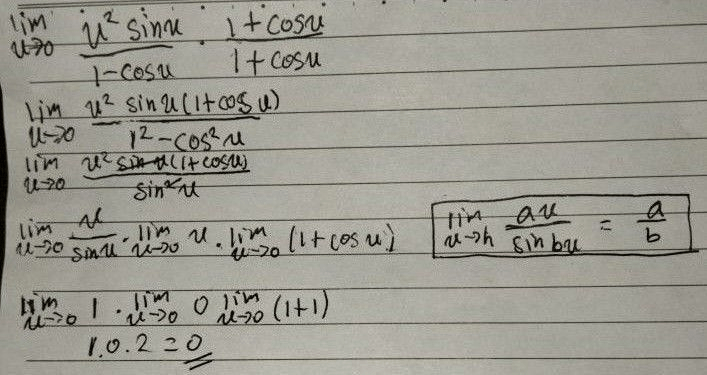 lim u→0 u² sinu / 1-cosu · 1+cosu / 1+cosu
lim u→0 u² sin u(1+cos u) / 1²-cos²u
lim u→0 u² sin u(1+cosu) / sin²u
lim u→0 u / sinu · lim u→0 u · lim u→0 (1+cosu)
lim u→h au / sin bu = a / b
lim u→0 1 · lim u→0 0 lim u→0 (1+1)
1.0.2 = 0